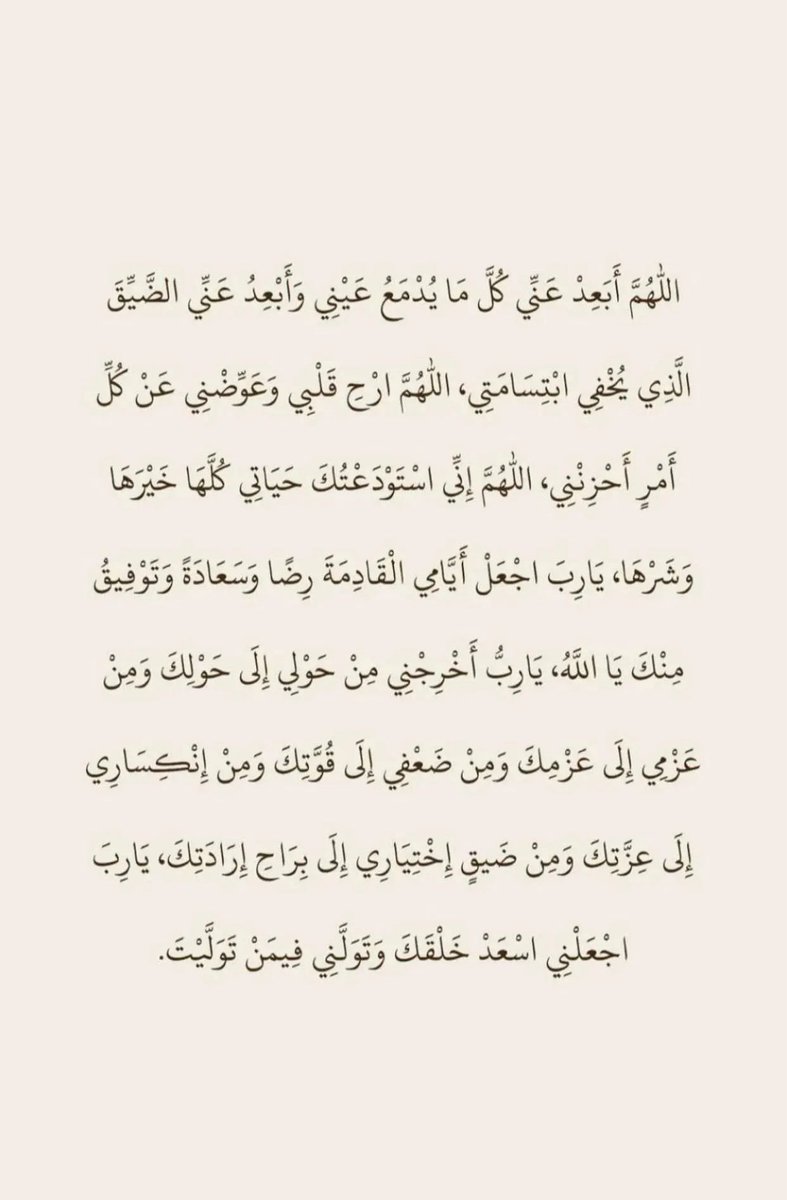 اللَّهُمَّ أَبَعِدْ عَنِّي كُلَّ مَا يُدْمَعُ عَيْنِي وَأَبْعِدُ عَنِّي الضَّيِّقَ
الَّذِي يُخْفِي ابْتِسَامَتِي، اللَّهُمَّ ارْحِ قَلْبِي وَعَوِّضْنِي عَنْ كُلِّ
أَمْرٍ أَحْزِنْنِي، اللَّهُمَّ إِنِّي اسْتَوْدَعْتُكَ حَيَاتِي كُلَّهَا خَيْرَهَا
وَشَرْهَا، يَارِبَ اجْعَلْ أَيَّامِي الْقَادِمَةَ رِضًا وَسَعَادَةً وَتَوْفِيقُ
مِنْكَ يَا اللَّهُ، يَارِبُّ أَخْرِجْنِي مِنْ حَوْلِي إِلَى حَوْلِكَ وَمِنْ
عَزْمِي إِلَى عَزْمِكَ وَمِنْ ضَعْفِي إِلَى قُوَّتِكَ وَمِنْ إِنْكِسَارِي
إِلَى عِزَّتِكَ وَمِنْ ضَيقٍ إِخْتِيَارِي إِلَى بِرَاحِ إِرَادَتِكَ، يَارِبَ
اجْعَلْنِي اسْعَدْ خَلْقَكَ وَتَوَلَّنِي فِيمَنْ تَوَلَّيْتَ.